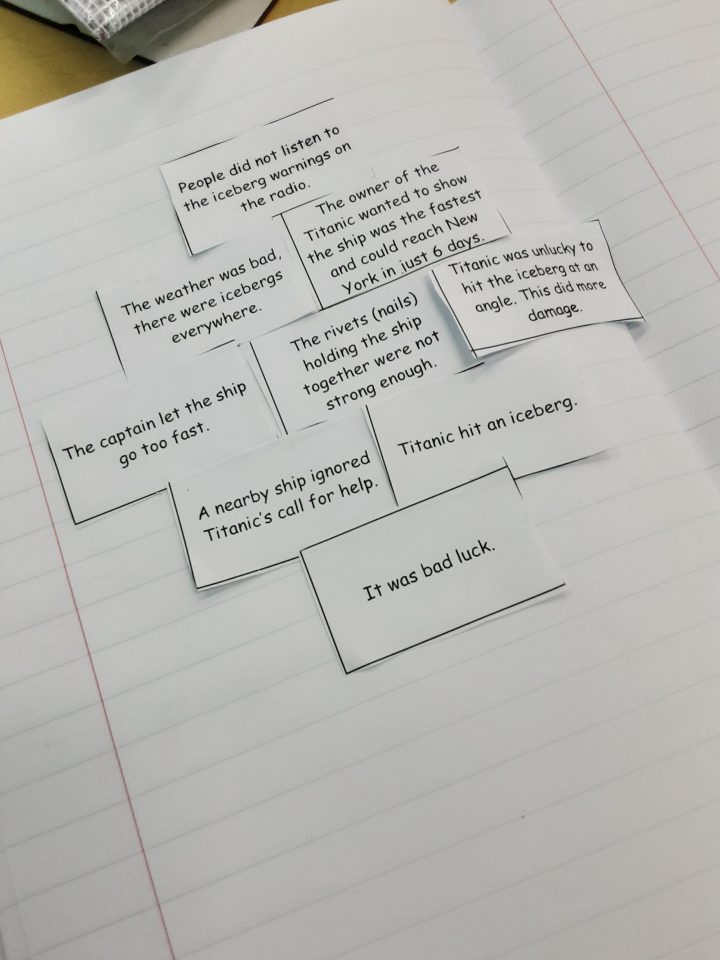 People did not listen to
the iceberg warnings on
the radio.
The owner of the
Titanic wanted to show
the ship was the fastest
and could reach New
York in just 6 days.
The weather was bad,
there were icebergs
everywhere.
Titanic was unlucky to
hit the iceberg at an
angle. This did more
damage.
The rivets (nails)
holding the ship
together were not
strong enough.
The captain let the ship
go too fast.
Titanic hit an iceberg.
A nearby ship ignored
Titanic's call for help.
It was bad luck.